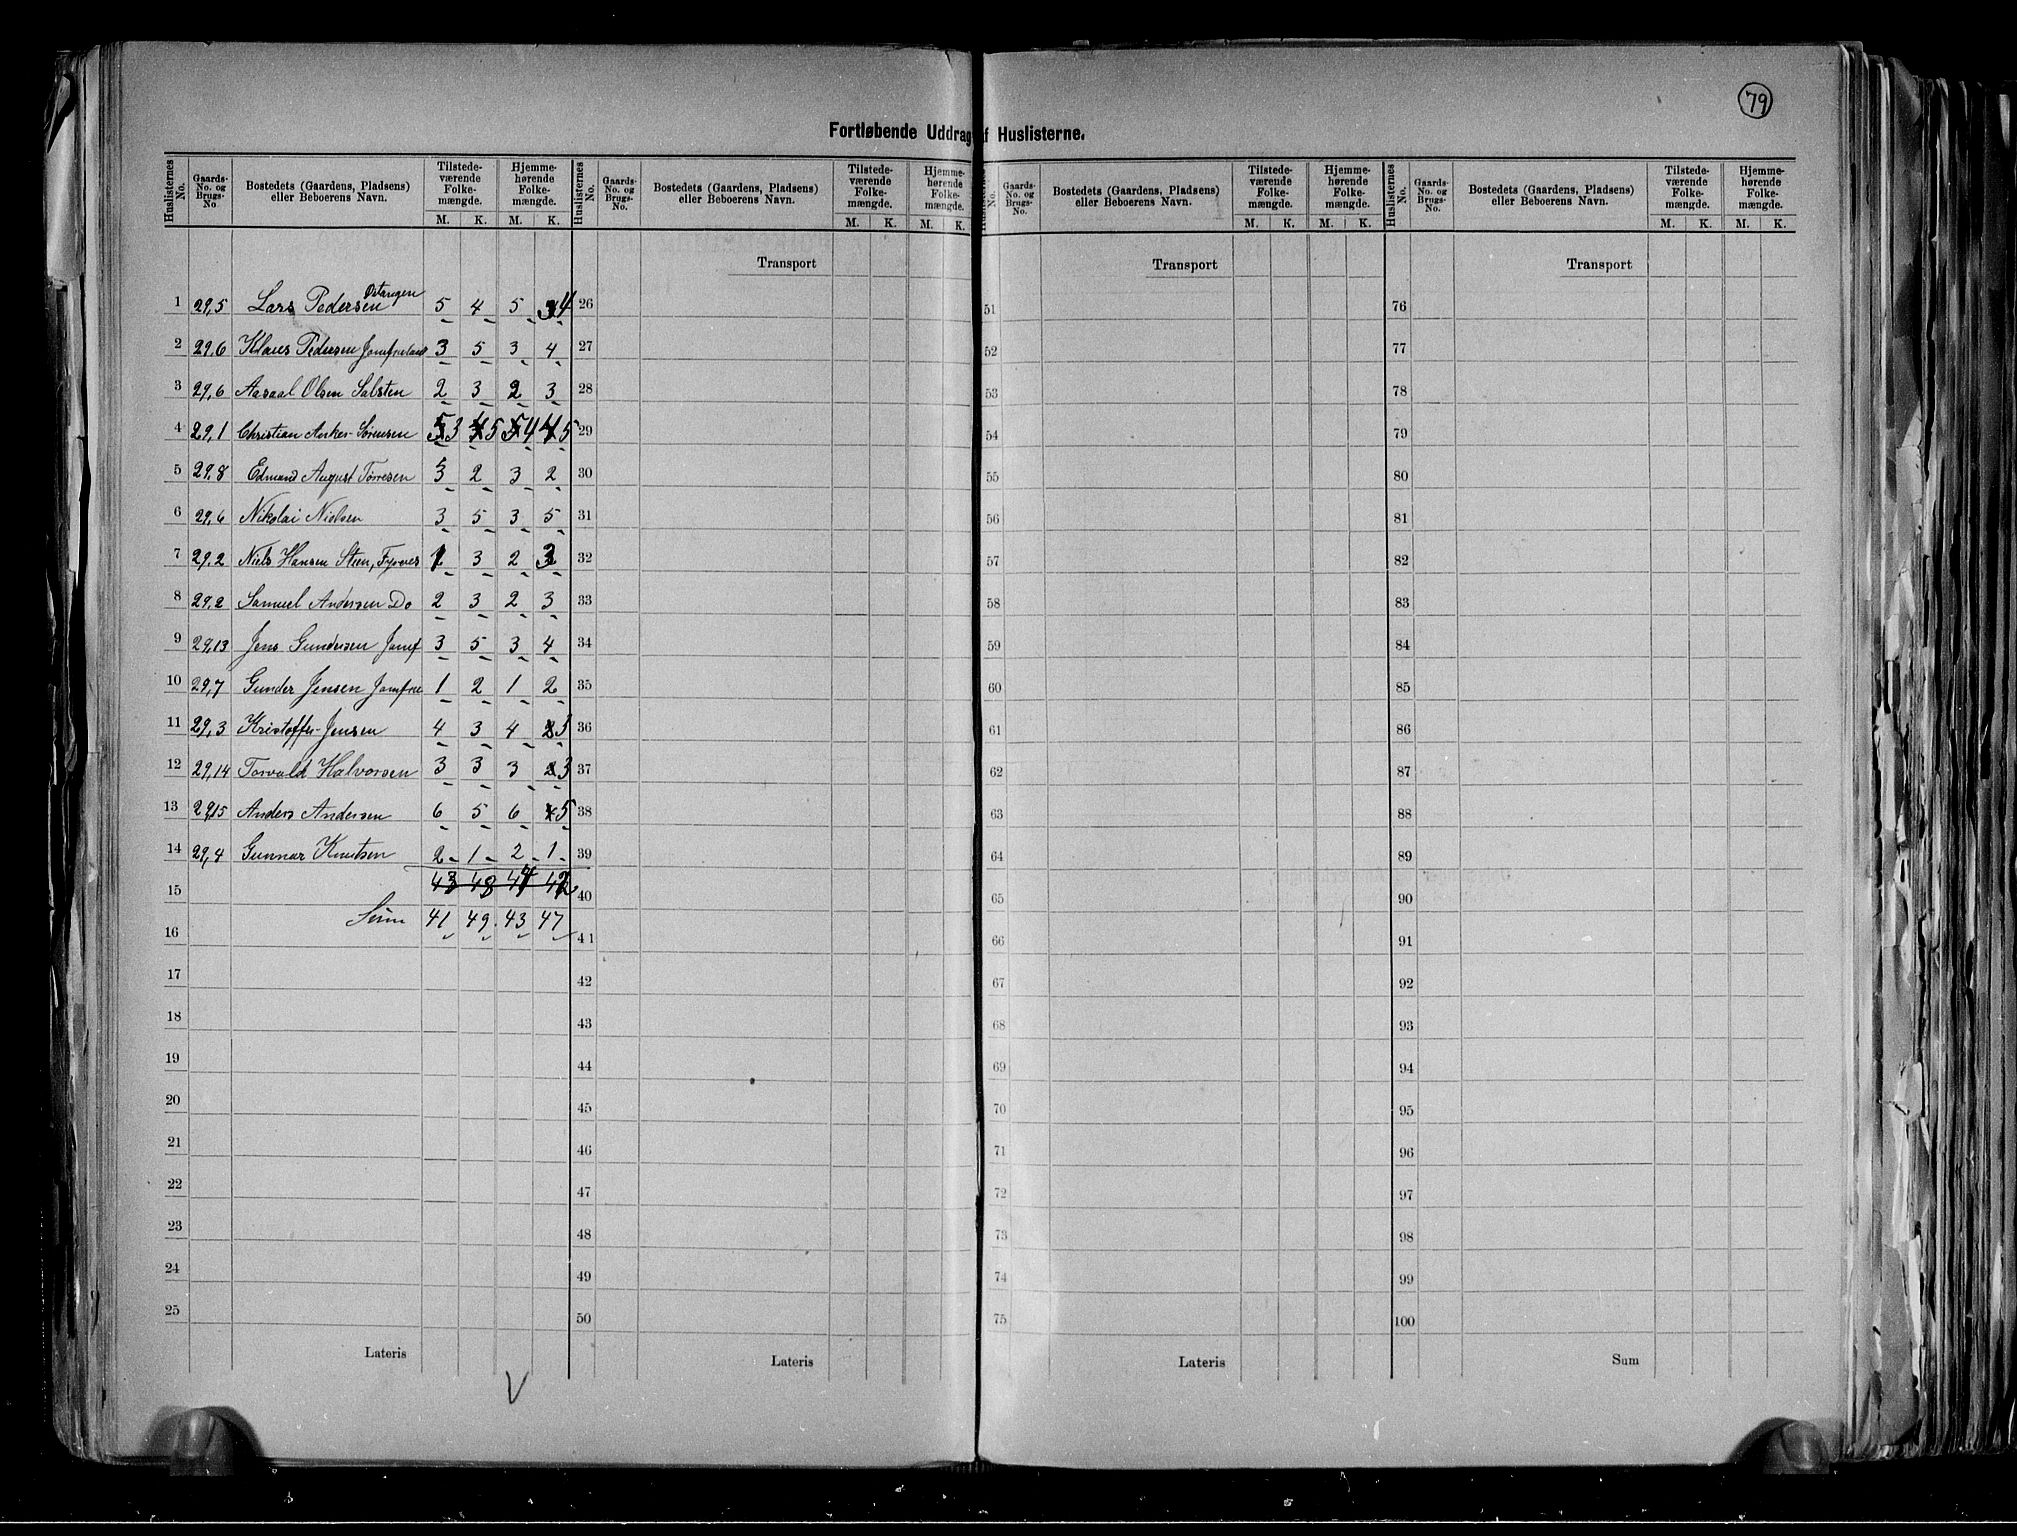 79
Fortløbende Uddrag af Huslisterne.
Huslisternes No. Gaards-No. og Brugs-No. Bostedets (Gaardens, Pladsens) eller Beboerens Navn. Tilstede-værende Folke-mængde. M. K. Hjemme-hørende Folke-mængde. M. K.
Huslisternes No. Gaards-No. og Brugs-No. Bostedets (Gaardens, Pladsens) eller Beboerens Navn. Tilstede-værende Folke-mængde. M. K. Hjemme-hørende Folke-mængde. M. K.
Huslisternes No. Gaards-No. og Brugs-No. Bostedets (Gaardens, Pladsens) eller Beboerens Navn. Tilstede-værende Folke-mængde. M. K. Hjemme-hørende Folke-mængde. M. K.
Huslisternes No. Gaards-No. og Brugs-No. Bostedets (Gaardens, Pladsens) eller Beboerens Navn. Tilstede-værende Folke-mængde. M. K. Hjemme-hørende Folke-mængde. M. K.
1 29,5 Lars Pedersen 5 4 5 4
2 29,6 Klaus Pedersen Jomfruland 3 5 3 4
3 29,6 Aasaal Olsen Saltsten 2 3 2 3
4 29,1 Christian Anker Sørensen 3 5 4 5
5 29,8 Edmand August Tørresen 3 2 3 2
6 29,6 Nikolai Nielsen 3 5 3 5
7 29.2 Niels Hansen Steen, 1 3 2 3
8 29,2 Samuel Andersen Do 2 3 2 3
9 29,13 Jens Gundersen Jomf 3 5 3 4
10 29,7 Gunder Jensen Jomfru 1 2 1 2
11 29,3 Kristoffer Jensen 4 3 4 3
12 29,14 Torvald Halvorsen 3 3 3 3
13 29,15 Anders Andersen 6 5 6 5
14 29,4 Gunnar Knutsen 2 1 2 1
15 43 48 44 42
Sum 41 49. 43 47
16
17
18
19
20
21
22
23
24
25
Lateris
V
Transport
26
27
28
29
30
31
32
33
34
35
36
37
38
39
40
41
42
43
44
45
46
47
48
49
50
Lateris
Transport
51
52
53
54
55
56
57
58
59
60
61
62
63
64
65
66
67
68
69
70
71
72
73
74
75
Lateris
Transport
76
77
78
79
80
81
82
83
84
85
86
87
88
89
90
91
92
93
94
95
96
97
98
99
100
Sum